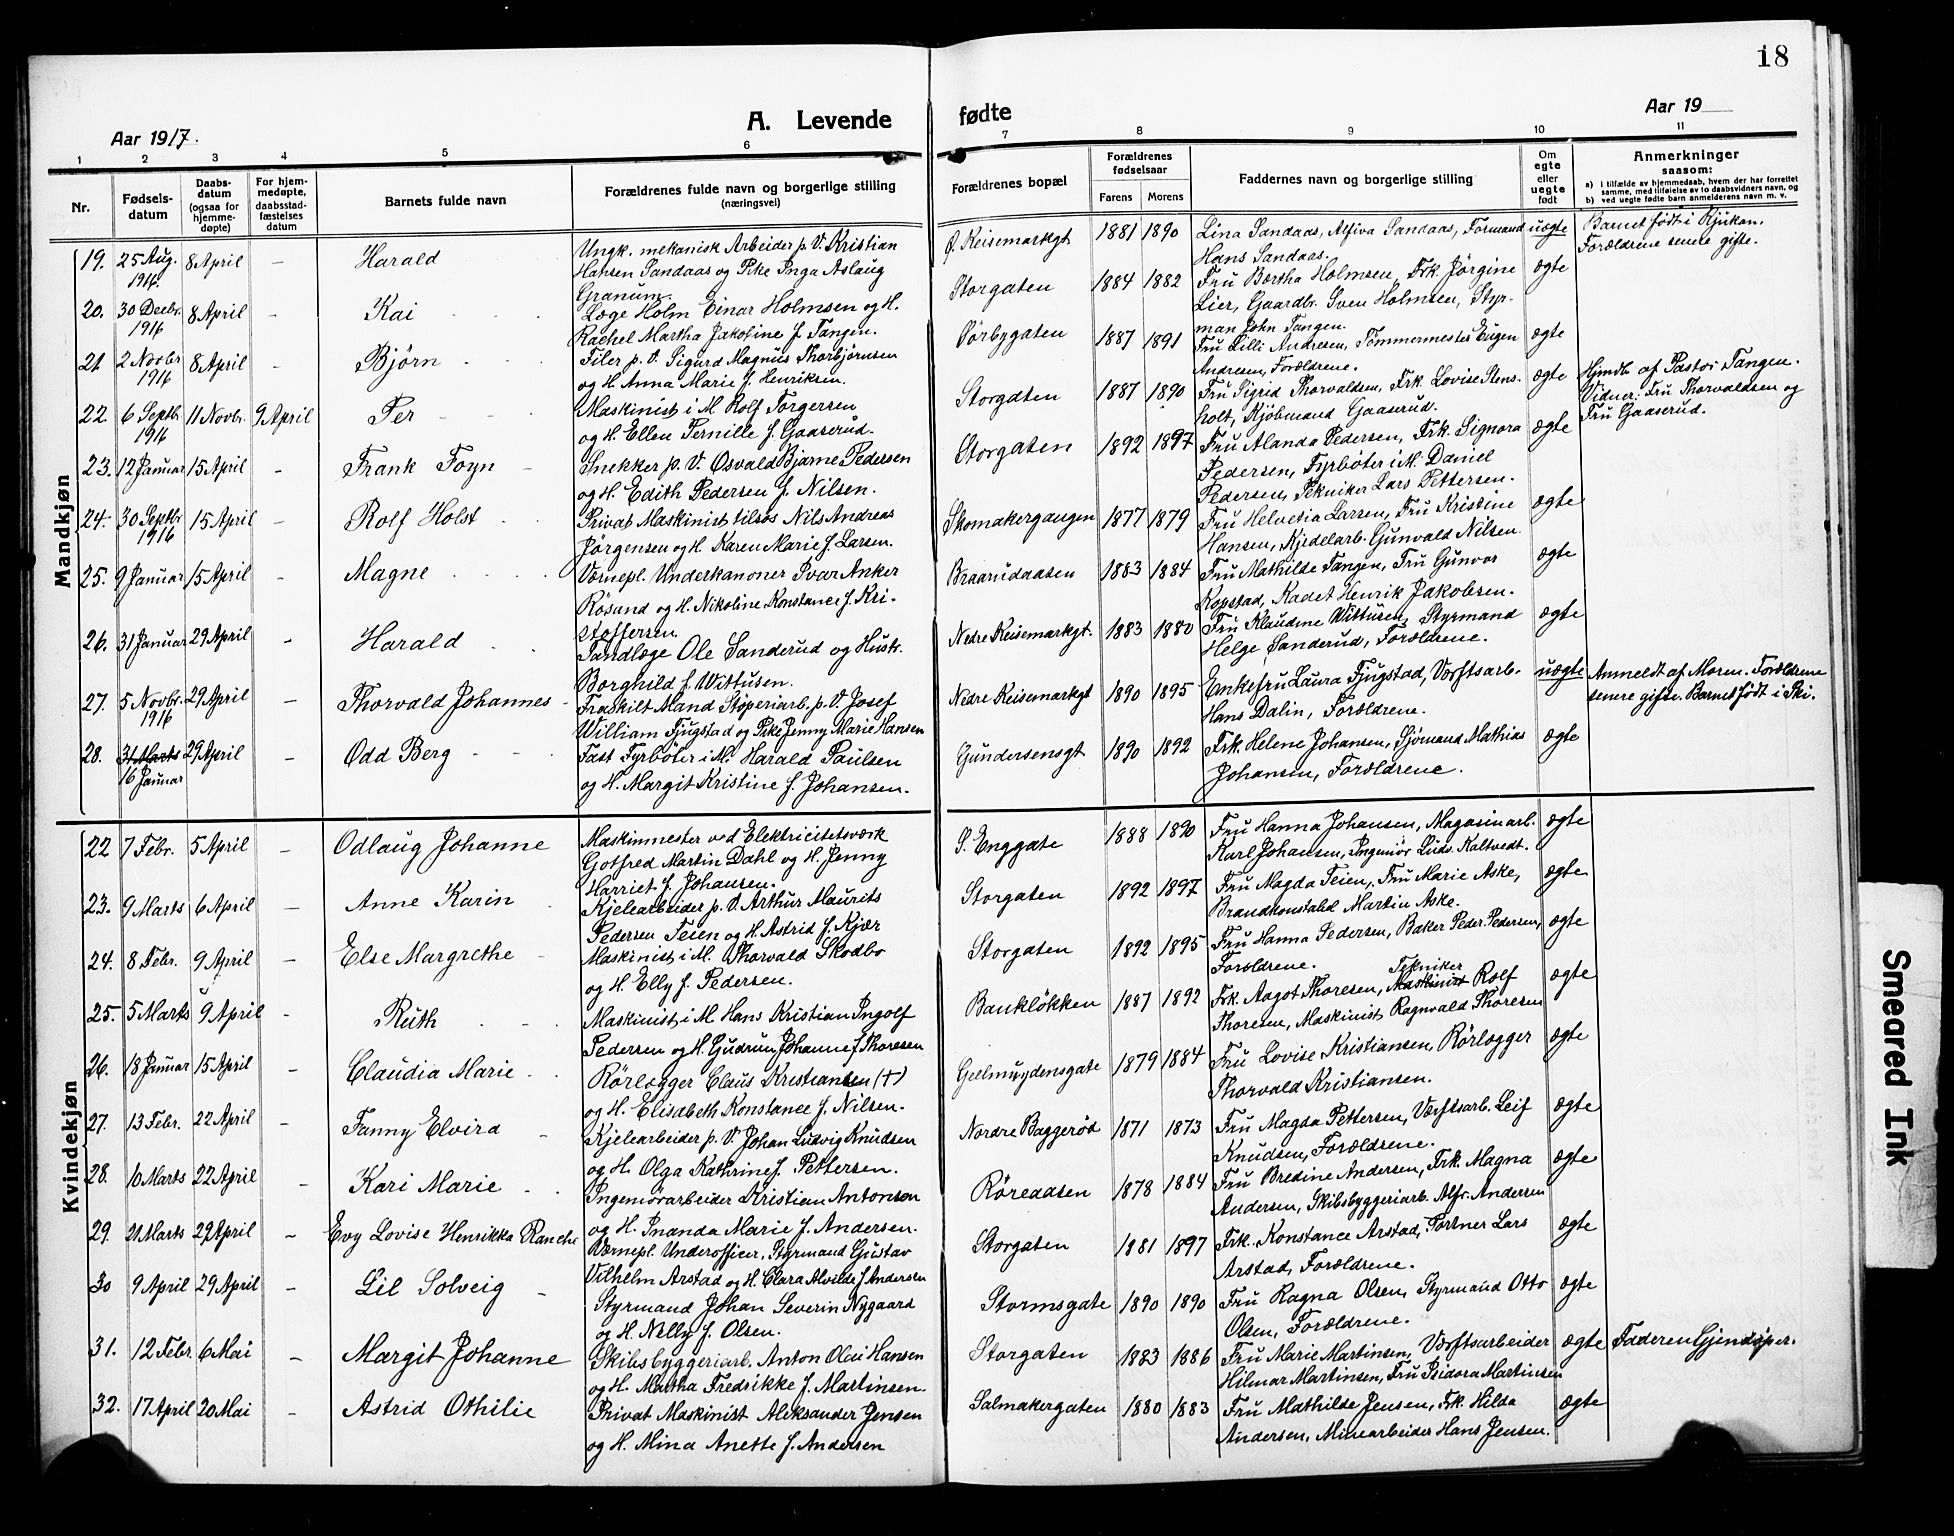 18
Aar 1917.
A. Levende
fødte
Aar 19
1 2 3 4 5 6 7 8 9 10 11
Nr.
Fødsels-
datum
Daabs-
datum
(ogsaa for
hjemme-
døpte)
For hjem-
medøpte,
daabsstad-
fæstelses
datum
Barnets fulde navn
Forældrenes fulde navn og borgerlige stilling
(næringsvei)
Forældrenes bopæl
Forældrenes
fødselsaar
Farens Morens
Faddernes navn og borgerlige stilling
Om
egte
eller
uegte
født
Anmerkninger
saasom:
a) i tilfælde av hjemmedaab, hvem der har forrettet
samme, med tilføielse av to daabsvidners navn, og
b) ved uegte fødte barn anmelderens navn m. v.
Mandkjøn
19. 25 Aug. 1916 8 April - Harald
Ungk. mekanisk Arbeider p. V. Kristian
Hansen Sandaas og Pike Inga Aslaug
Granum.
Ø. Reisemarkgt 1881 1890
Lina Sandaas, Alfiva Sandaas, Formand
Hans Sandaas.
uægte
Barnet født i Rjukan.
Forældrene senere gifte.
20. 30 Decbr. 1916 8 April - Kai
Læge Holm Einar Holmsen og H.
Rachel Martha Jakobine f. Tangen.
Storgaten 1884 1882
Fru Bertha Holmsen, Frk. Jörgine
Lier, Gaardbr. Sven Holmsen, Styr-
man John Tangen.
ægte
21 2 Novbr 1916 8 April - Björn
Filer p. V. Sigurd Magnus Thorbjørnsen
og H. Anna Marie f. Henriksen.
Ørbygaten 1887 1891
Fru Lilli Andresen, Tømmermester Eugen
Andresen, Forældrene.
ægte
22. 6 Septbr. 1916 11 Novbr. 9 April Per
Maskinist i M. Rolf Torgersen
og H. Ellen Pernille f. Gaaserud.
Storgaten 1887 1890
Fru Sigrid Thorvaldsen, Frk. Lovise Stens-
holt, Kjöbmand Gaaserud.
ægte
Hjmdb. af Pastor Tangen.
Vidner: Fru Thorvaldsen og
Fru Gaaserud.
23. 12 Januar 15 April - Frank Foyn
Snekker p. V. Osvald Bjarne Pedersen
og H. Edith Pedersen f. Nilsen.
Storgaten 1892 1897
Fru Alanda Pedersen, Frk. Signora
Pedersen, Fyrböter i M. Daniel
Pedersen, Tekniker Lars Pettersen.
ægte
24. 30 Septbr 1916 15 April - Rolf Holst
Privat Maskinist tilsøs Nils Andreas
Jörgensen og H. Karen Marie f. Larsen.
Skomakergangen 1877 1879
Fru Helvetia Larsen, Fru Kristine
Hansen, Kjedelarb. Gunvald Nilsen.
ægte
25. 9 Januar 15 April - Magne
Værnepl. Underkanoner Ivar Anker
Rösand og H. Nikoline Konstance f. Kri-
stoffersen.
Braarudaasen 1883 1884
Fru Mathilde Tangen, Fru Gunvor
Kopstad, Kadet Henrik Jakobsen.
ægte
26. 31 Januar 29 April - Harald
Tandlæge Ole Sanderud og Hustr.
Borghild f. Wittusen.
Nedre Keisemarkgt. 1883 1880
Fru Klaudine Wittusen, Styrmand
Helge Sanderud, Forældrene.
ægte
27. 5 Novbr. 1916 29 April - Thorvald Johannes
Fraskilt Mand Støperiarb. p. V. Josef
William Fjugstad og Pike Jenny Marie Hansen
Nedre Keisemarkgt 1890 1895
Enkefru Laura Fjugstad, Værftsarb.
Hans Dalin, Forældrene.
uægte
Anmeldt af Moren. Forældrene
senere gifte. Barnet født i Ski.
28. 31 Marts 16 Januar 29 April - Odd Berg
Fast Fyrböter i M. Harald Paulsen
og H. Margit Kristine f. Johansen.
Gundersensgt 1890 1892
Frk. Helene Johansen, Sjömand Mathias
Johansen, Forældrene.
ægte
Kvindekjøn
22 7 Febr. 5 April - Odlaug Johanne
Maskinmester ved Elektricitetsværk
Gotfred Martin Dahl og H. Jenny
Harriet f. Johansen.
S. Enggate 1888 1890
Fru Hanna Johansen, Magasinarb.
Karl Johansen, Ingeniör Ludv. Kaltvedt.
ægte
23. 9 Marts 6 April - Anne Karin
Kjelearbeider p. V. Arthur Maurits
Pedersen Teien og H. Astrid f. Kjær
Storgaten 1892 1897
Fru Magda Teien, Fru Marie Aske,
Brandkonstabel Martin Aske.
ægte
24. 8 Febr. 9 April - Else Margrethe
Maskinist i M. Thorvald Skodbo
og H. Elly f. Pedersen.
Storgaten 1892 1895
Fru Hanna Pedersen, Baker Peder Pedersen,
Forældrene.
ægte
25. 5 Marts 9 April - Ruth
Maskinist i M. Hans Kristian Ingolf
Pedersen og H. Gudrun Johanne f. Thoresen
Bankløkken 1887 1892
Frk. Aagot Thoresen, Maskinist Tekniker Rolf
Thoresen, Maskinist Ragnvald Thoresen
ægte
26. 18 Januar 15 April - Claudia Marie
Rörlægger Claus Kristiansen (†)
og H. Elisabeth Konstance f. Nilsen.
Geelmuydensgate 1879 1884
Fru Lovise Kristiansen, Rörlægger
Thorvald Kristiansen.
ægte
27. 13 Febr. 22 April - Fanny Elvira
Kjelearbeider p. V. Johan Ludvig Knudsen
og H. Olga Kathrine f. Pettersen.
Nordre Baggeröd 1871 1873
Fru Magda Pettersen, Værftsarb. Leif
Knudsen, Forældrene.
ægte
28. 6 Marts 22 April - Kari Marie
Ingeniørarbeider Kristian Antonsen
og H. Inanda Marie f. Andersen.
Röreaasen 1878 1884
Fru Bredine Andersen, Frk. Magna
Andersen, Skibsbyggeriarb. Alfr. Andersen
ægte
29. 21 Marts 29 April - Evy Lovise Henrikka Ranche
Værnepl. Underofficer, Styrmand Gustav
Vilhelm Arstad og H. Clara Alvilde f. Andersen
Storgaten 1881 1897
Frk. Konstance Arstad, Portner Lars
Arstad, Forældrene.
ægte
30 9 April 29 April - Lil Solveig
Styrmand Johan Severin Nygaard
og H. Nelly f. Olsen.
Stormsgate 1890 1890
Fru Ragna Olsen, Styrmand Otto
Olsen, Forældrene.
ægte
31. 12 Febr. 6 Mai - Margit Johanne
Skibsbyggeriarb. Anton Olai Hansen
og H. Martha Fredrikke f. Martinsen.
Storgaten 1883 1886
Fru Marie Martinsen, Værftsarbeider
Hilmar Martinsen, Fru Isidora Martinsen
ægte
Faderen Gjendöper.
32. 17 April 20 Mai - Astrid Othilie
Privat Maskinist Aleksander Jensen
og H. Mina Anette f. Andersen
Salmakergaten 1880 1883
Fru Mathilde Jensen, Frk. Hilda
Andersen, Minearbeider Hans Jensen.
ægte
Smeared Ink